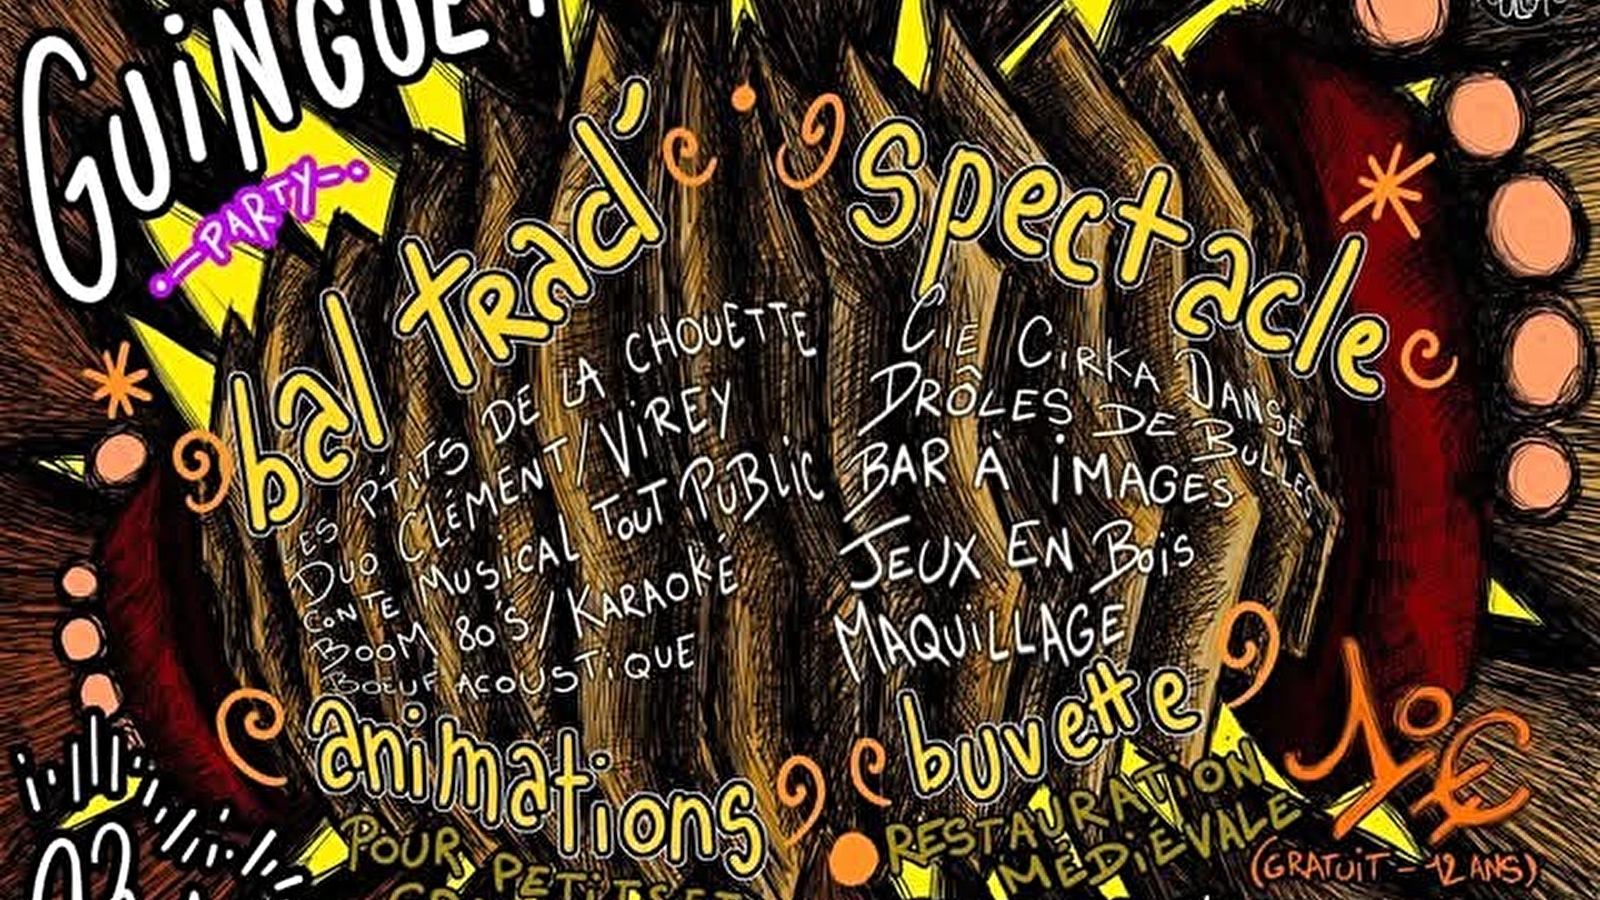 PARTY
bal trad'
LES P'TITS DE LA CHOUETTE
DUO CLÉMENT/VIREY
CONTE MUSICAL TOUT PUBLIC
BOOM 80'S/KARAOKÉ
BOEUF ACOUSTIQUE
animations
POUR PETITS ET
spectacle
CIE CIRKA DANSE
DRÔLES DE BULLES
BAR À IMAGES
JEUX EN BOIS
MAQUILLAGE
buvette
RESTAURATION
MÉDIÉVALE
10€
(GRATUIT - 12 ANS)